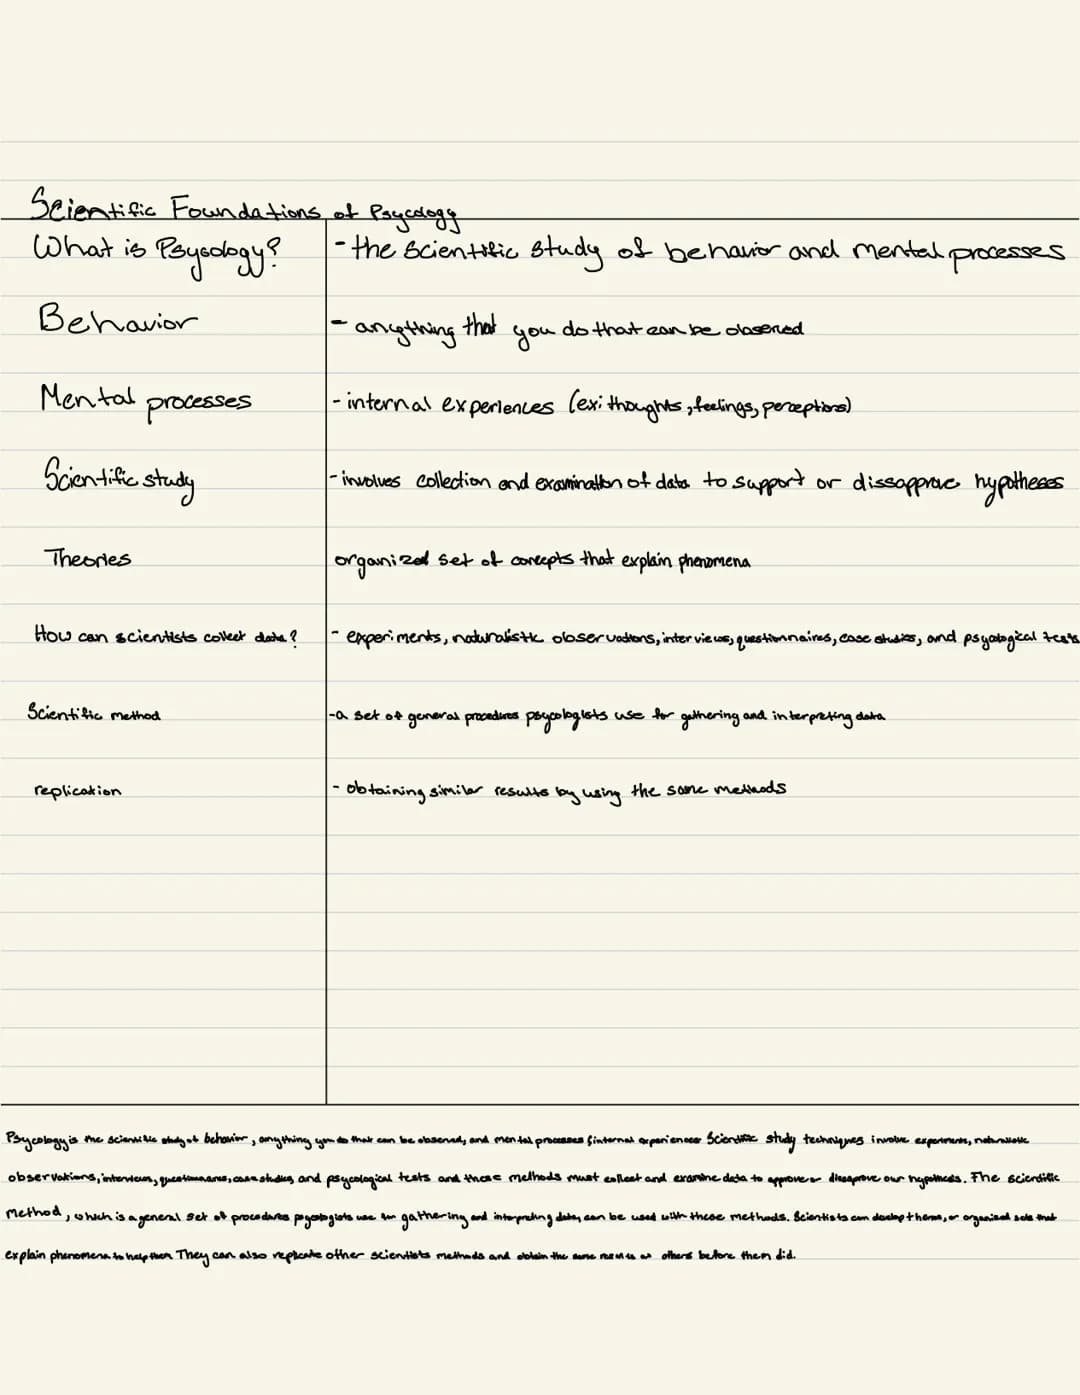 Scientific Foundations of Psycology
What is Psycology? - the scientific study of behavior and mental processes
Behavior - anything that you do that can be observed
Mental processes - internal experiences (ex: thoughts, feelings, perceptions)
Scientific study - involves collection and examination of data to support or dissapprove hypotheses
Theories organized set of concepts that explain phenomena
How can scientists collect data? - experiments, naturalistic observations, interviews, questionnaires, case studies, and psycological tests
Scientific method - a set of general procedures psycologists use for gathering and interpreting data
replication - obtaining similar results by using the same methods
Psycology is the scientific study of behavior, anything you do that can be observed, and mental processes internal experiences Scientific study techniques involve experiments, naturalistic
observations, interviews, questionnares, case studies, and psycological tests and these methods must collect and examine data to approve or disapprove our hypothesis. The scientific
method, which is a general set of procedures psycologists use for gathering and interpreting data, can be used with these methods. Scientists can develop, or organized sets that
explain phenomena to help them They can also replicate other scientists methods and obtain the same results as others before them did.